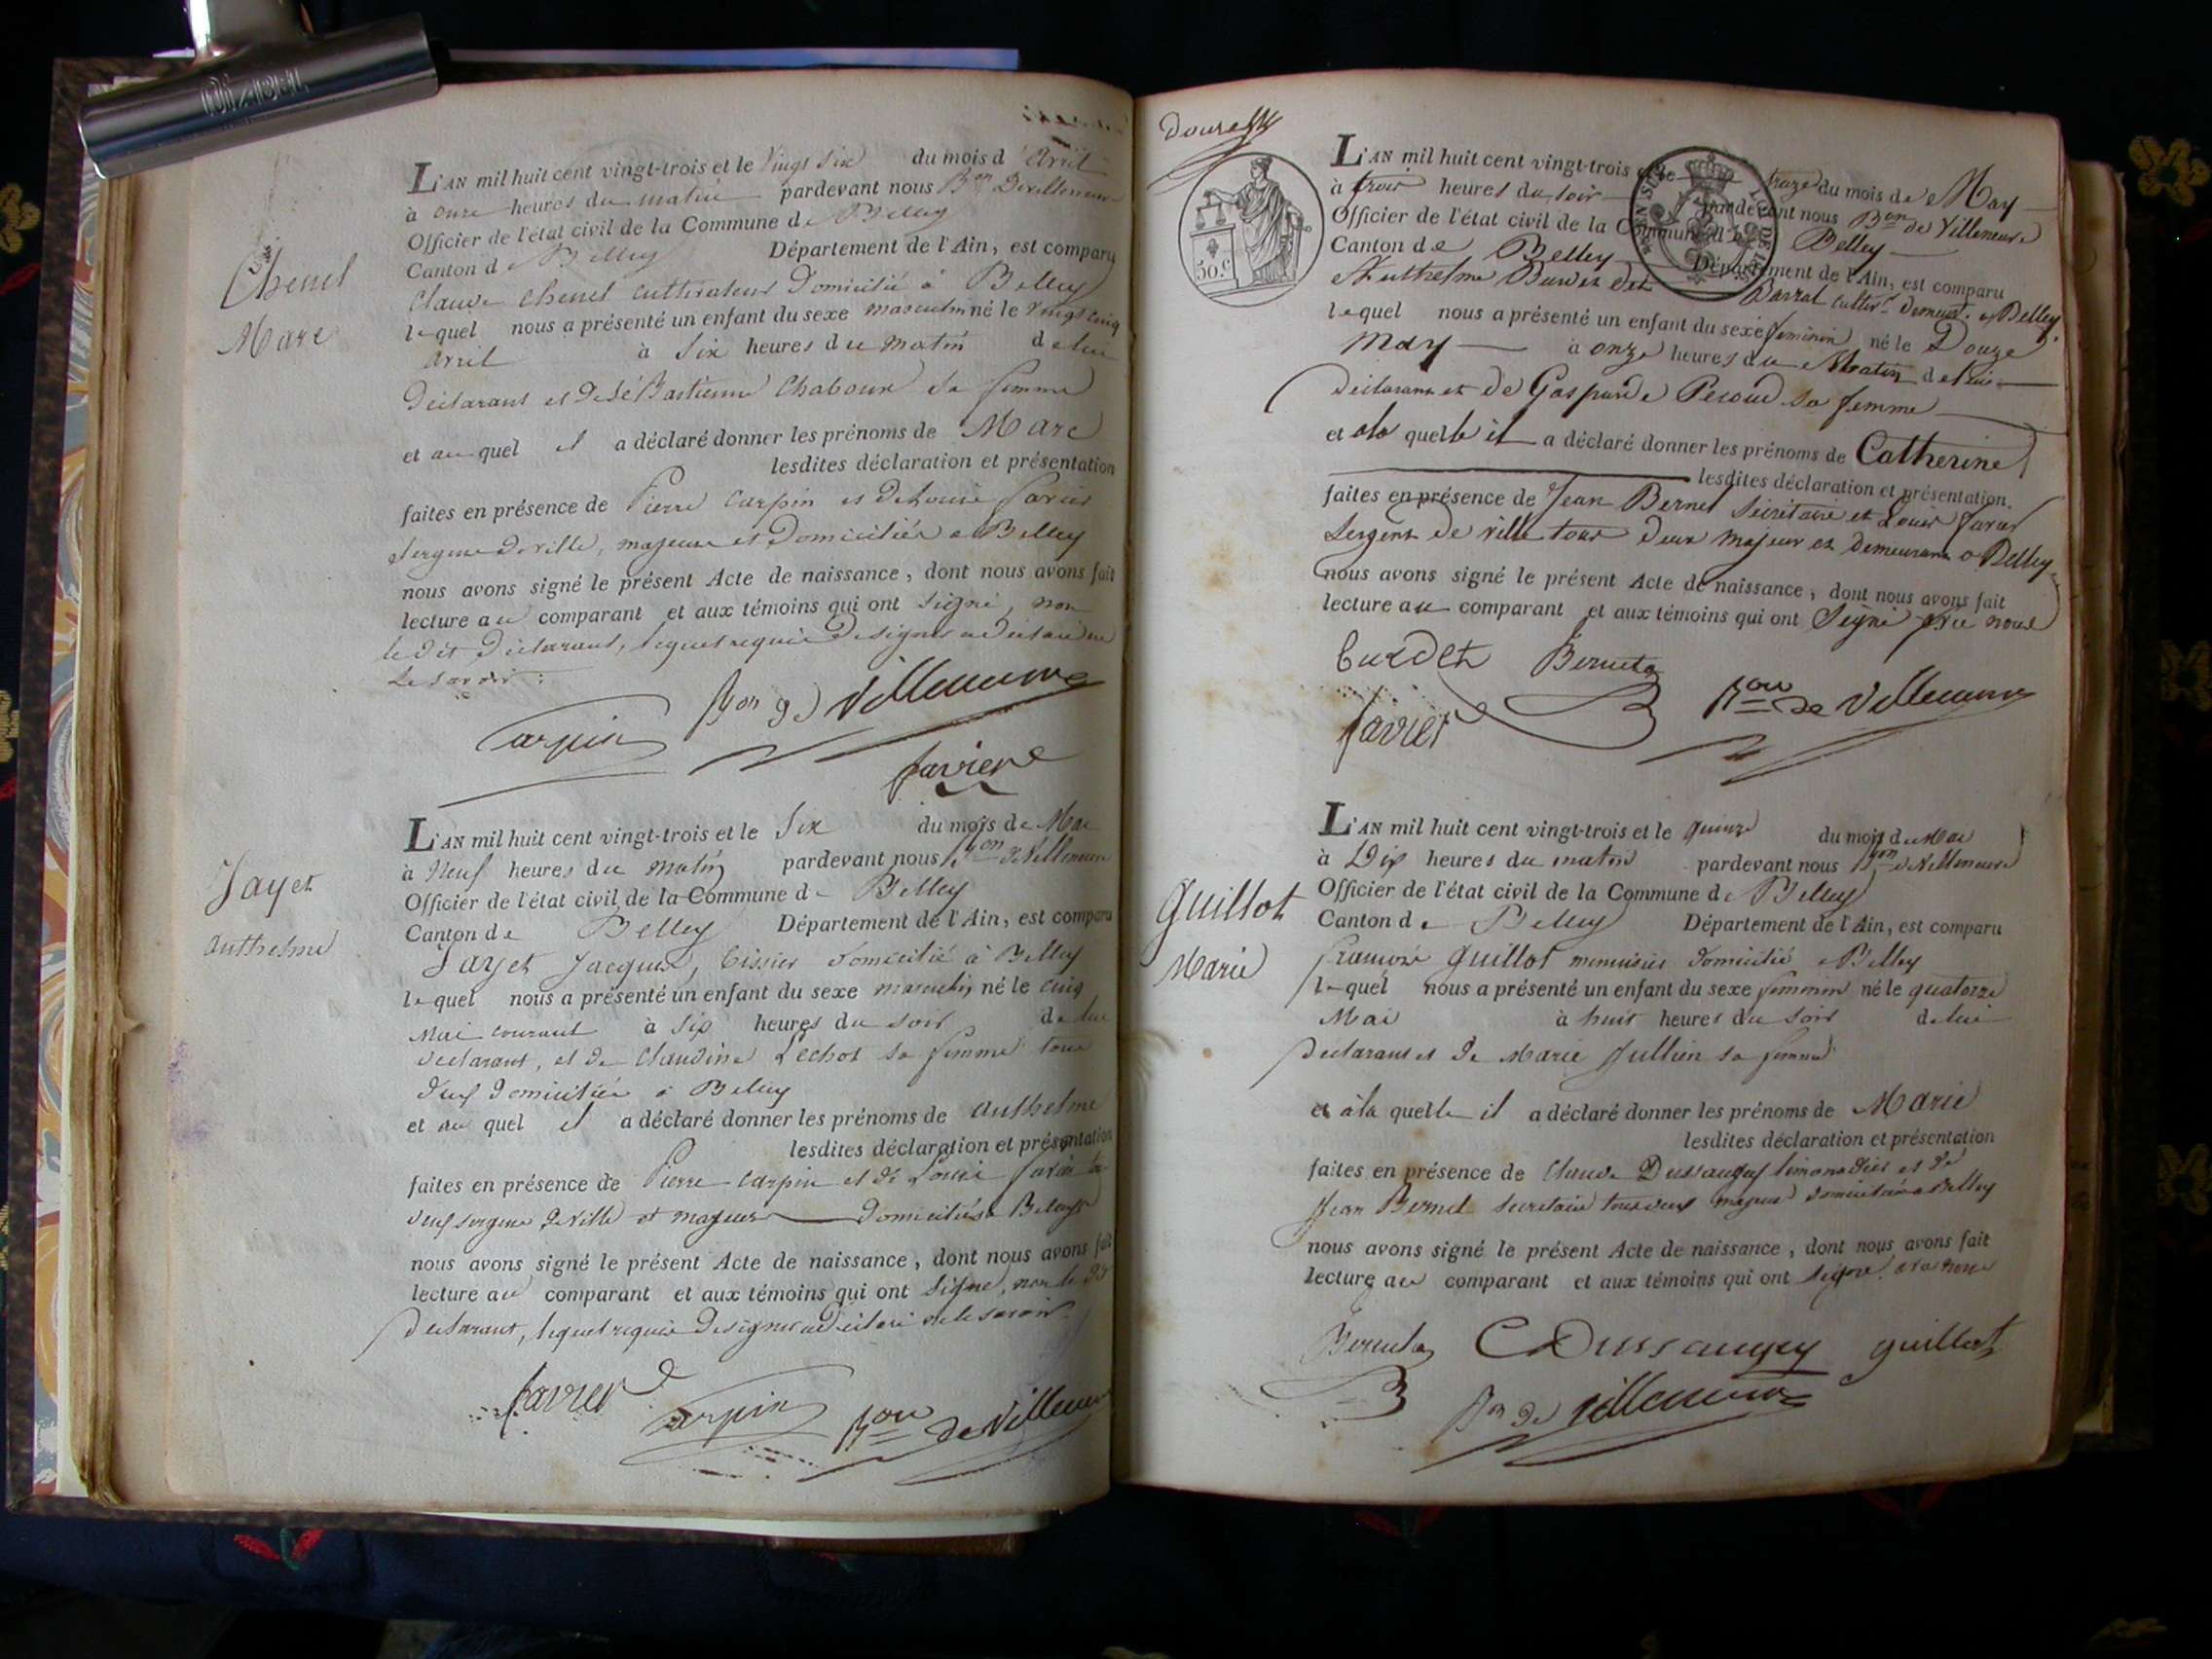 L'AN mil huit cent vingt-trois et le Vingt Six du mois d'Avril
à onze heures du matin pardevant nous Bon Devilleneuve
Officier de l'état civil de la Commune de Belley
Canton de Belley Département de l'Ain, est comparu
Chenet
Marc
Claude Chenet cultivateur Domicilié à Belley
lequel nous a présenté un enfant du sexe masculin né le vingt cinq
avril à Six heures du matin de lui
Déclarant et de Sébastienne Chaboux sa femme
et au quel il a déclaré donner les prénoms de Marc
lesdites déclaration et présentation
faites en présence de Pierre Carpin et de Louis favier
sergens de ville, majeurs et Domiciliés a Belley
nous avons signé le présent Acte de naissance, dont nous avons fait
lecture au comparant et aux témoins qui ont Signé, non
le dit Déclarant, lequel requis de signer a déclaré ne
le savoir :
Bon de Villeneuve
Carpin
favier
L'AN mil huit cent vingt-trois et le Six du mois de Mai
à Neuf heures du matin pardevant nous Bon de Villeneuve
Officier de l'état civil de la Commune de Belley
Canton de Belley Département de l'Ain, est comparu
Jayet
anthelme
Jayet Jacques, tissier domicilié à Belley
lequel nous a présenté un enfant du sexe masculin né le cinq
Mai courant à Six heures du soir de lui
déclarant, et de Claudine Lechot sa femme tous
deux domiciliés à Belley
et au quel il a déclaré donner les prénoms de anthelme
lesdites déclaration et présentation
faites en présence de Pierre Carpin et de Louis favier tous
deux sergens de Ville et majeurs domiciliés a Belley
nous avons signé le présent Acte de naissance, dont nous avons fait
lecture au comparant et aux témoins qui ont Signé, non le dit
Déclarant, lequel requis de signer a déclaré ne le savoir
favier Carpin Bon de Villeneuve
50.c
L'AN mil huit cent vingt-trois et le treize du mois de May
à trois heures du soir pardevant nous Bon de Villeneuve
Officier de l'état civil de la Commune de Belley
Canton de Belley Département de l'Ain, est comparu
Anthelme Burdet dit Barrat cultivr demeurt à Belley
lequel nous a présenté un enfant du sexe féminin né le Douze
May à onze heures du Matin de lui
déclarant et de Gasparde Pecoud sa femme
et ala quelle il a déclaré donner les prénoms de Catherine
lesdites déclaration et présentation
faites en présence de Jean Bernet Secrétaire et Louis favier
Sergent de ville tous deux majeur et demeurant a Belley
nous avons signé le présent Acte de naissance, dont nous avons fait
lecture au comparant et aux témoins qui ont Signé avec nous
burdet Bernet
favier Bon de Villeneuve
L'AN mil huit cent vingt-trois et le quinze du mois de Mai
à Dix heures du matin pardevant nous Bon de Villeneuve
Officier de l'état civil de la Commune de Belley
Canton de Belley Département de l'Ain, est comparu
Guillot
Marie
François Guillot menuisier domicilié a Belley
lequel nous a présenté un enfant du sexe féminin né le quatorze
Mai à huit heures du soir de lui
Déclarant et de Marie Jullien sa femme
et à la quelle il a déclaré donner les prénoms de Marie
lesdites déclaration et présentation
faites en présence de Claude Dussaugey limonadier et de
Jean Bernet secrétaire tous deux majeurs domiciliés a Belley
nous avons signé le présent Acte de naissance, dont nous avons fait
lecture au comparant et aux témoins qui ont signé avec nous
Bernet CDussaugey guillot
Bon de Villeneuve